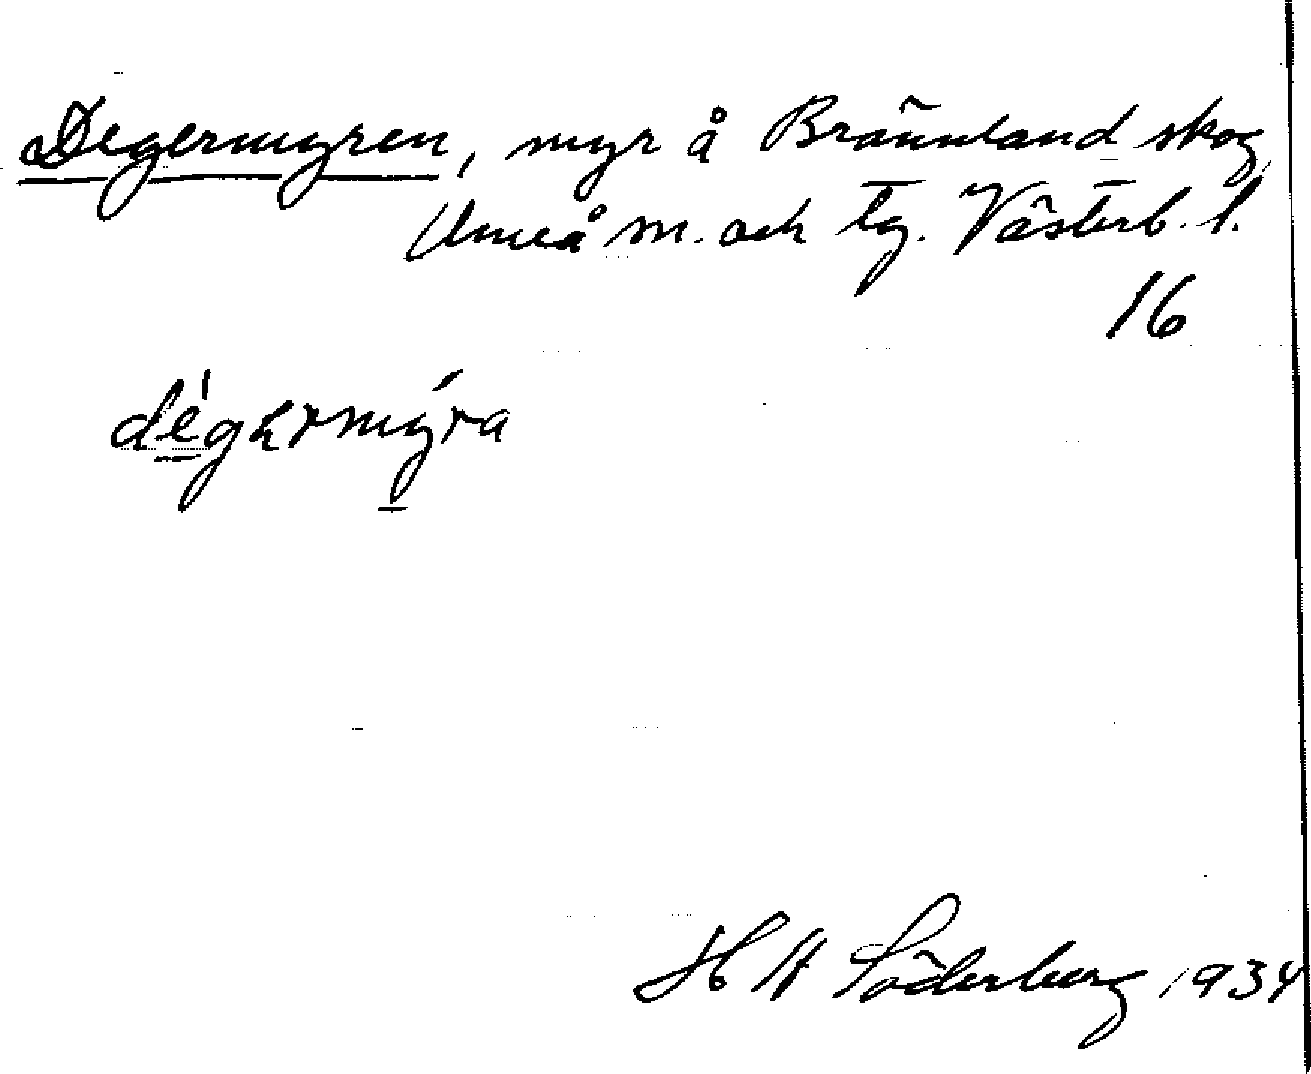 Degermyren, myr å Brännland skog,
Umeå sn. och tg. Västerb. l.
16
H W Söderberg 1934